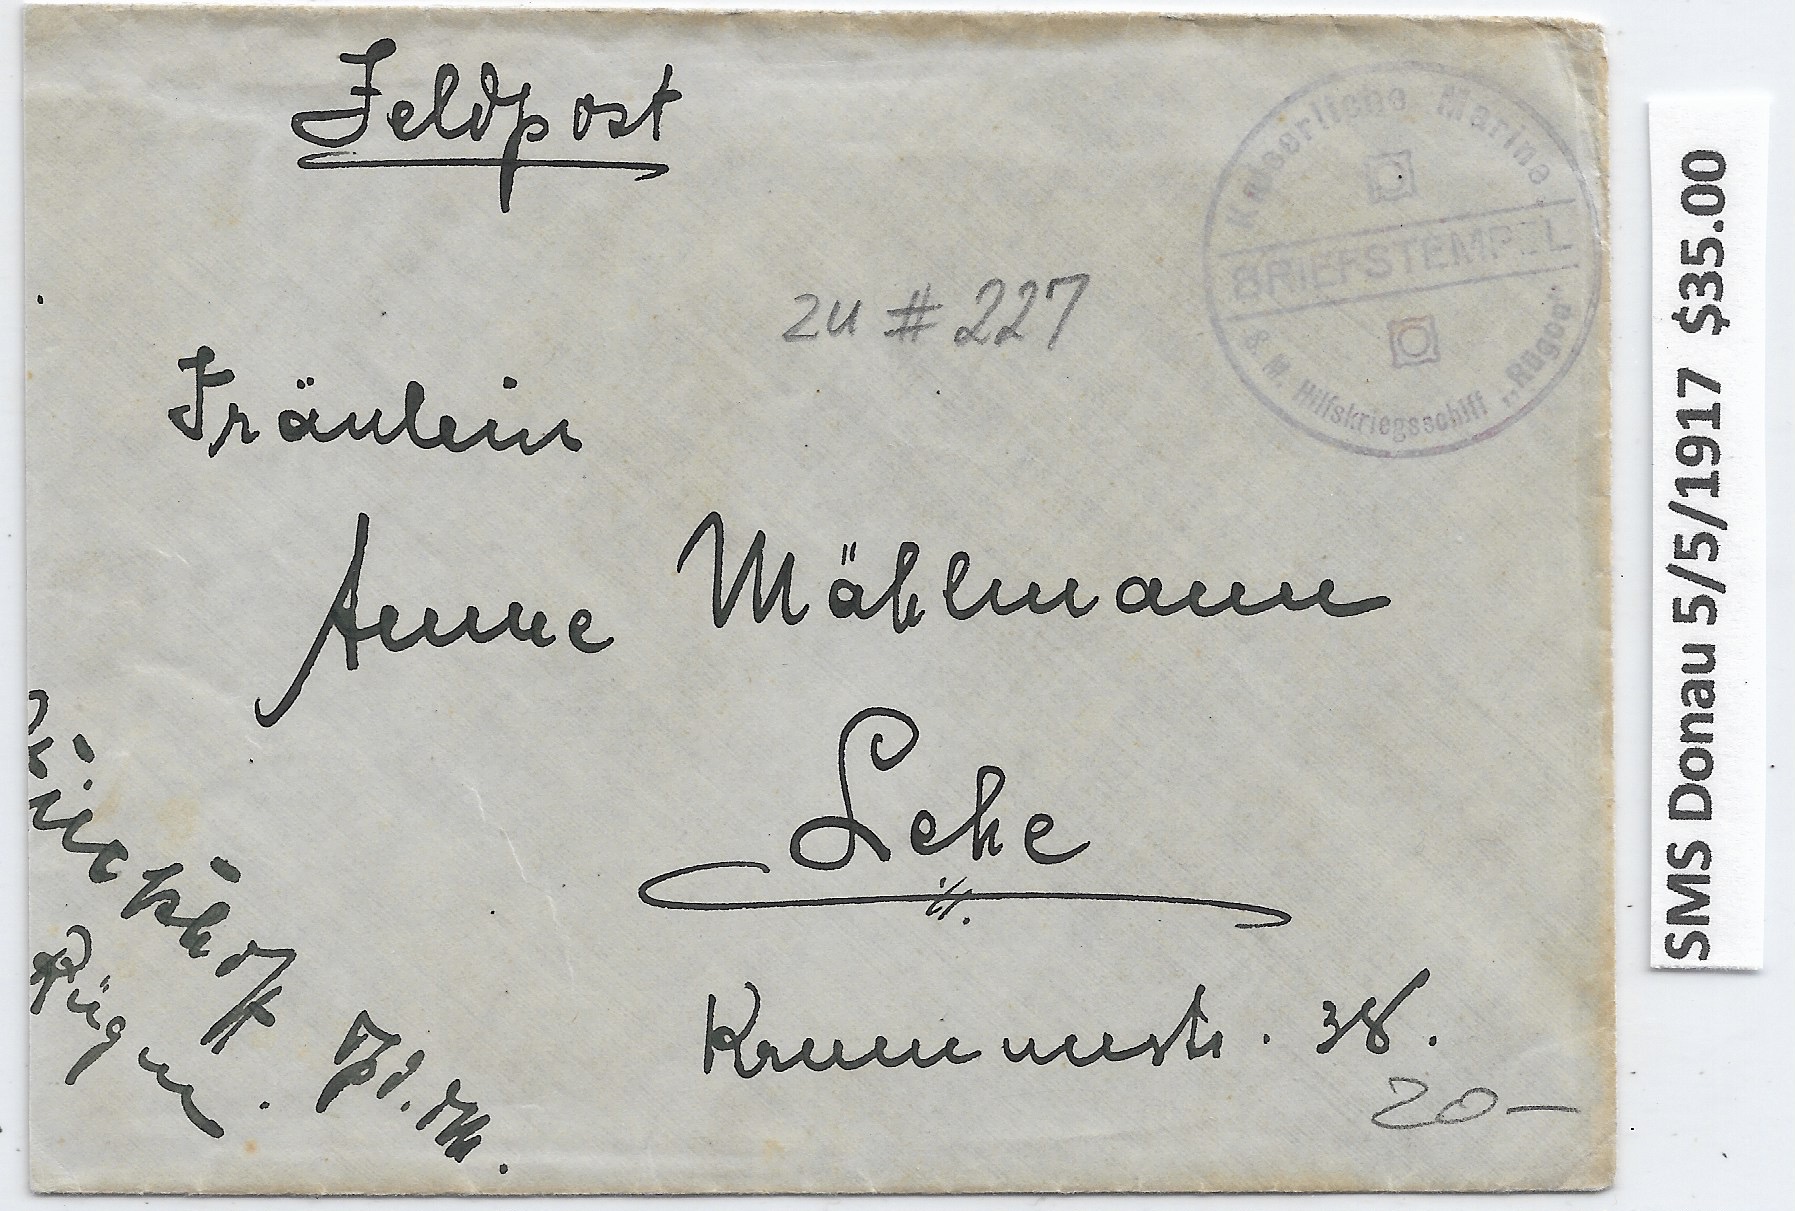 Feldpost
Kaiserliche Marine
BRIEFSTEMPEL
S. M. Hilfskriegsschiff „Rügen"
zu # 227
Fräulein
Anne Mählmann
Lehe
Krummestr. 38.
20—
Rügen.
SMS Donau 5/5/1917 $35.00